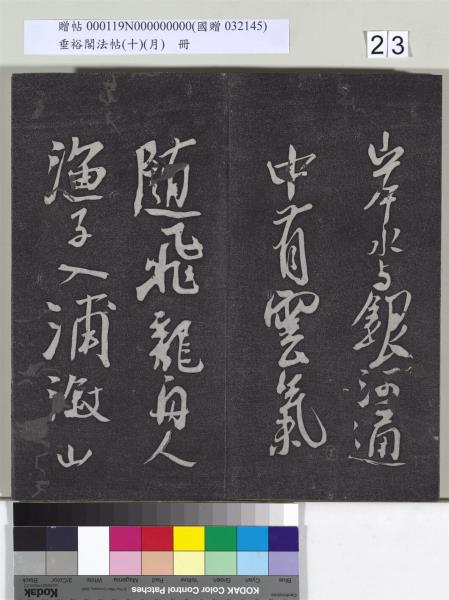 贈帖 000119N000000000(國贈 032145)
垂裕閣法帖(十)(月) 冊
23
岸水与銀河通
中有雲氣
隨飛龍舟人
漁子入浦漵山
KODAK Color Control Patches
Blue Cyan Green Yellow Red Magenta White 3/Color Black
Kodak